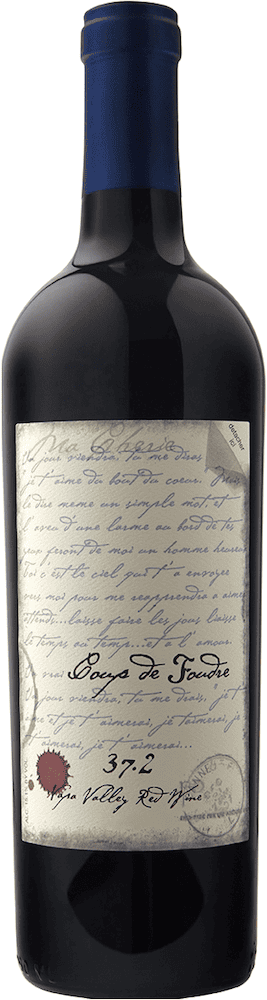 detacher
ici
Ma Cherie
Un jour viendra, tu me diras
je t'aime du bout du coeur. Mais
le dire meme un simple mot, et
l'aveu d'une larme au bord de tes
yeux feront de moi un homme heureux
Toi c'est le ciel qui t'a envoyer
vers moi pour me reapprendre a aimer
attends...laisse faire les jours laisse
le temps au temps...et a l'amour.
Un vrai Coup de Foudre
Un jour viendra, tu me dras, "je t'
aime et je t'aimerai, je t'aimerai, je
t'aimerai, je t'aimerai...
37.2
Napa Valley Red Wine